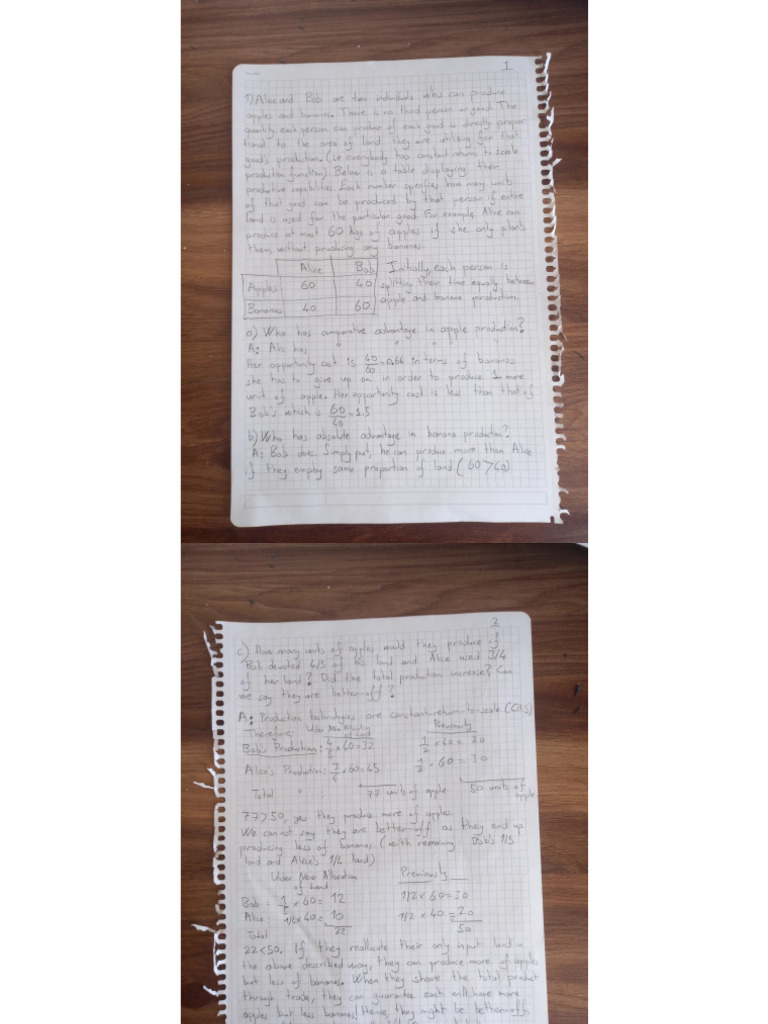 1
1) Alice and Bob are two individuals who can produce
apples and bananas. There is no third person or good. The
quantity each person can produce of each good is directly propor
tional to the area of land they are utilizing for that
good's production. (i.e everybody has constant returns to scale
production function) Below is a table displaying their
productive capabilities. Each number specifies how many units
of that good can be produced by that person if entire
land is used for the particular good. For example Alice can
produce at most 60 kgs of apples if she only plants
them, without producing any bananas.
Alice Bob
Apples 60 40
Bananas 40 60
Initially, each person is
splitting their time equally between
apple and banana production.
a) Who has comparative advantage in apple production?
A: Alice has " " " "
Her opportunity cost is 40/60=0,66 in terms of bananas
she has to give up on in order to produce 1 more
unit of apple. Her opportunity cost is less than that of
Bob's which is 60/40=1.5
b) Who has absolute advantage in banana production?
A: Bob does. Simply put, he can produce more than Alice
if they employ same proportion of land (60>40)
2
c) How many units of apples would they produce if
Bob devoted 4/5 of his land and Alice used 3/4
of her land? Did the total production increase? Can
we say they are better-off?
A: Production technologies are constant-return-to-scale (CRS)
Therefore: Under New Allocation of Land Previously
Bob's Production: 4/5 x 40=32 1/2 x 40 = 20
Alice's Production: 3/4 x 60=45 1/2 x 60 = 30
Total " 77 units of apple 50 units of apple
77>50, yes they produce more of apples.
We cannot say they are better-off as they end up
producing less of bananas. (with remaining Bob's 1/5
land and Alice's 1/4 land)
Under New Allocation of Land Previously
Bob: 1/5 x 60= 12 1/2 x 60=30
Alice: 1/4 x 40= 10 1/2 x 40 = 20
Total 22 50
22<50. If they reallocate their only input land in
the above described way, they can produce more of apples
but less of bananas. When they share the total product
through trade, they can guarantee each will have more
apples but less bananas. Hence, they might be better-off,